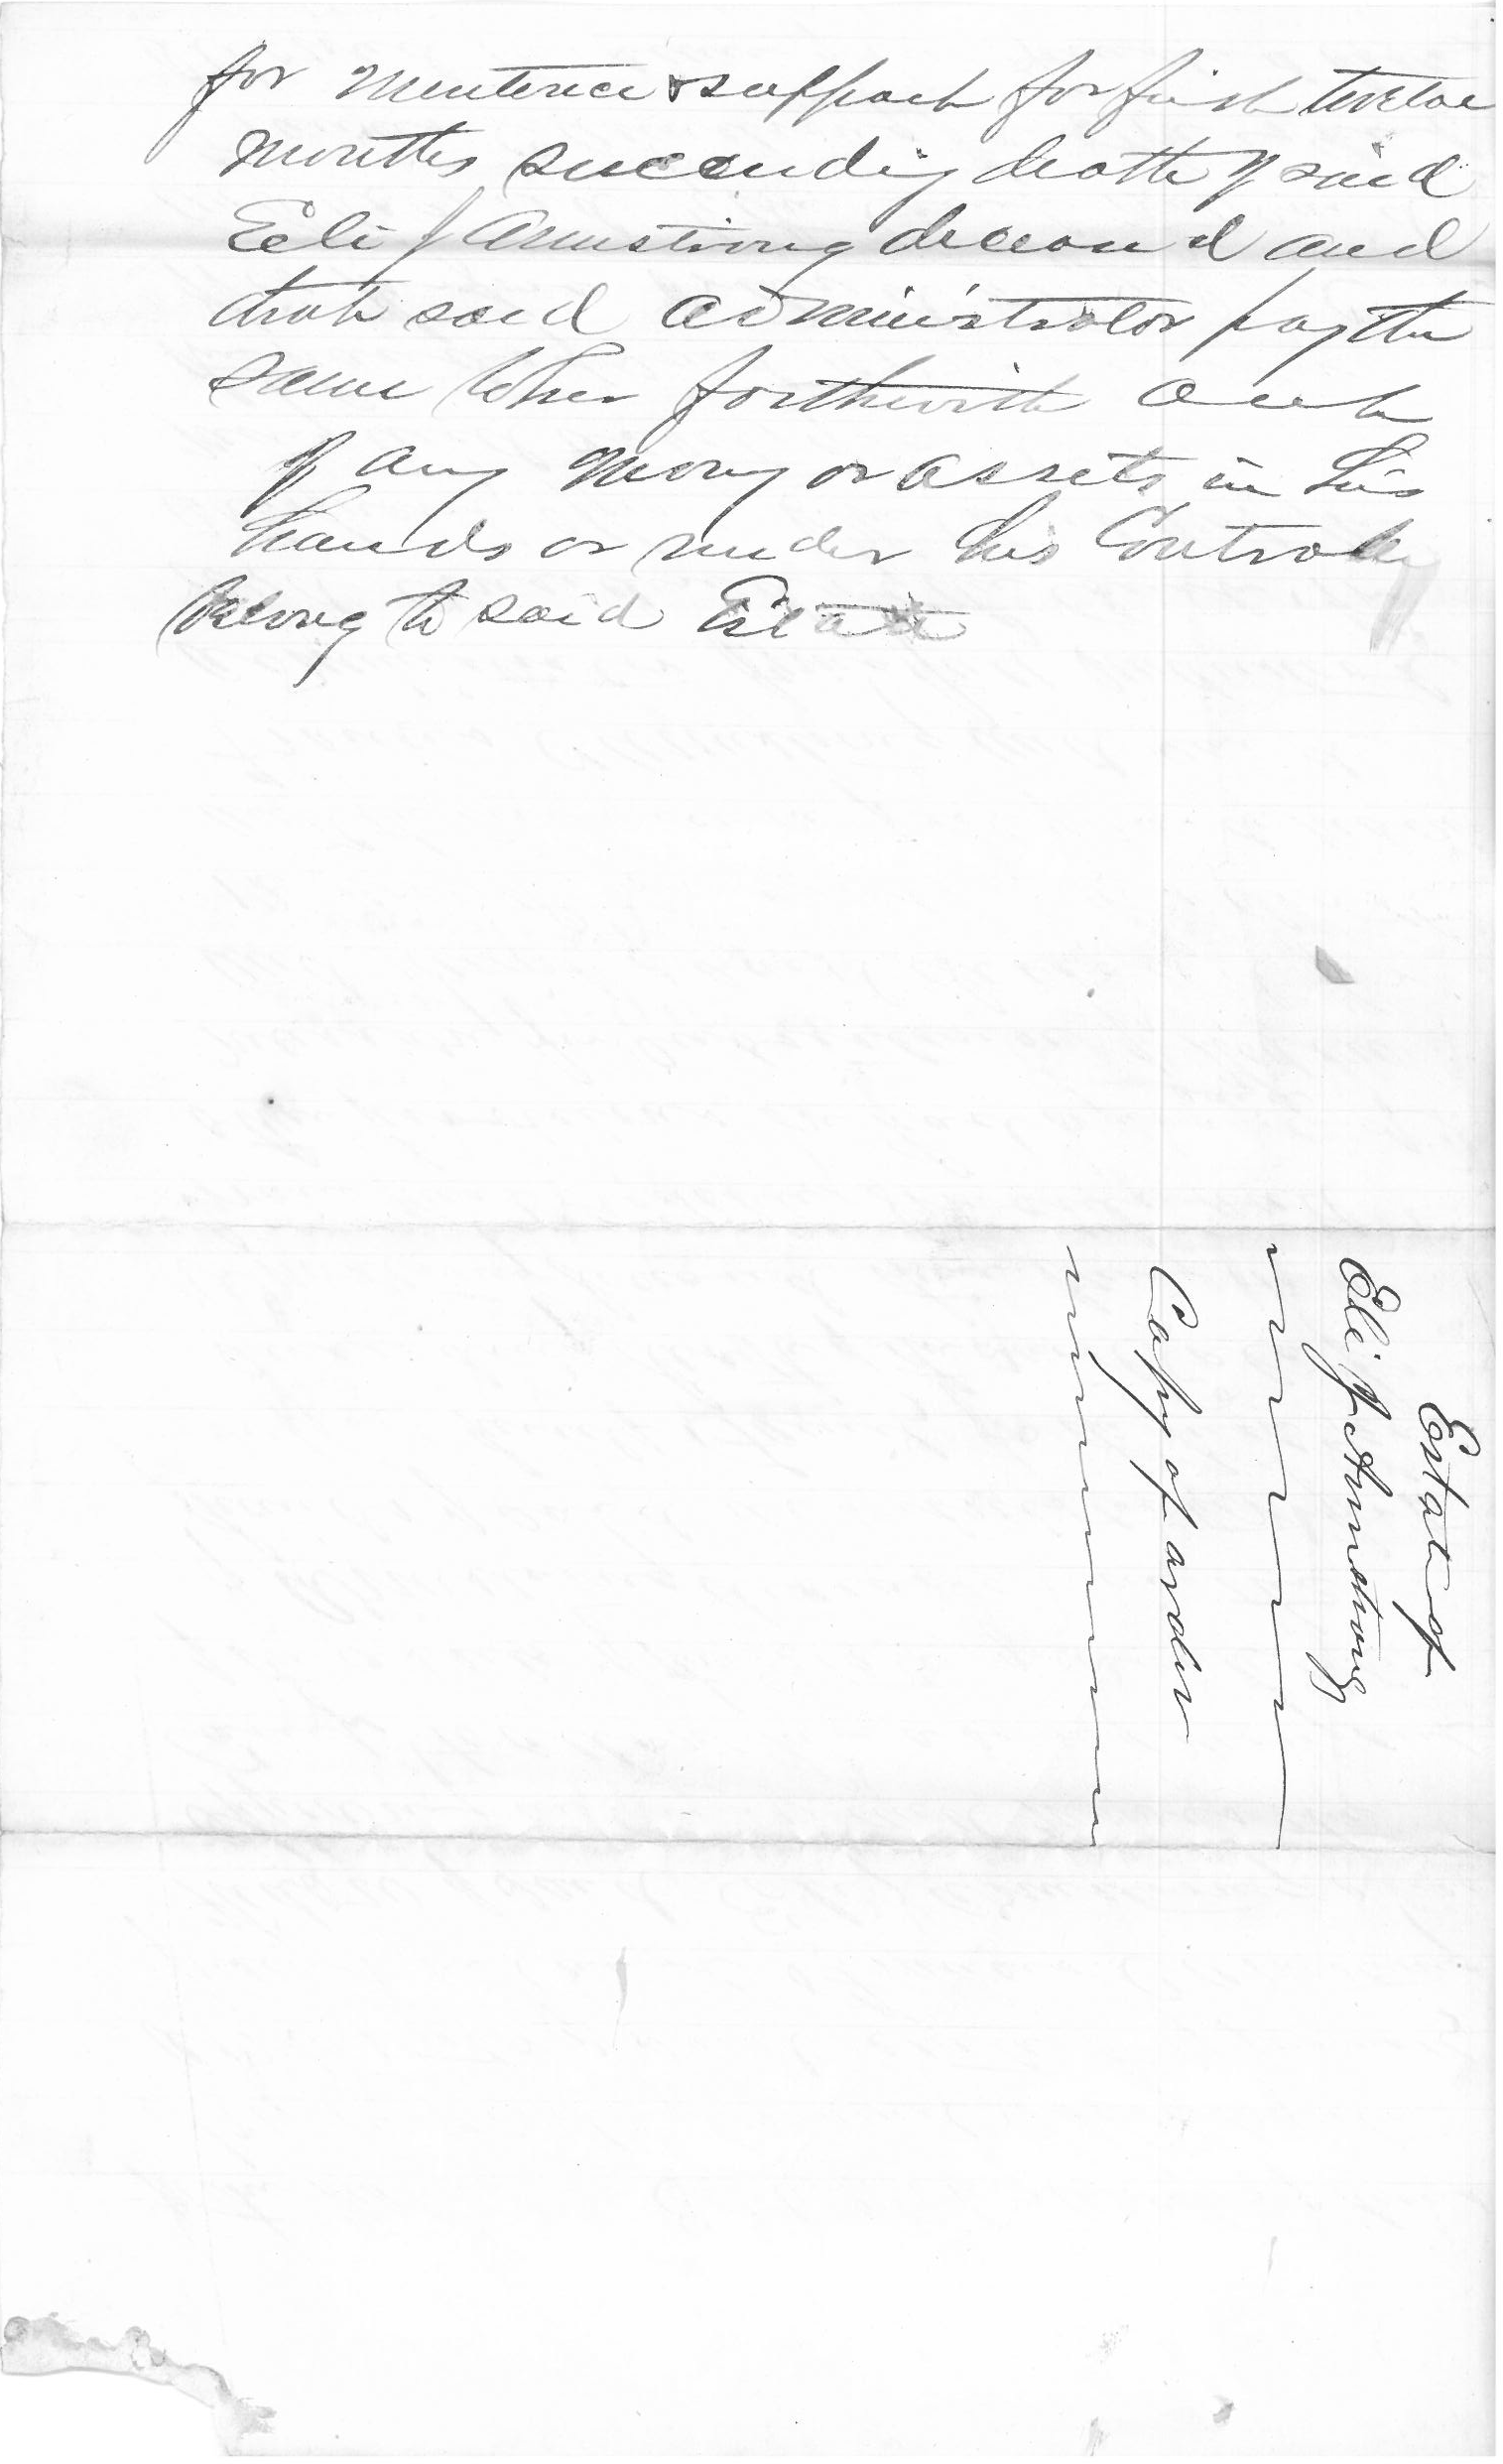 for mentence & support for first twelve
months succeeding death of said
Eli J Armstrong deceased and
that said administrator pay the
same to her forthwith out
of any mony or assets in his
hands or under his Control
belong to said Estate
Estate of
Eli J Armstrong
Copy of order